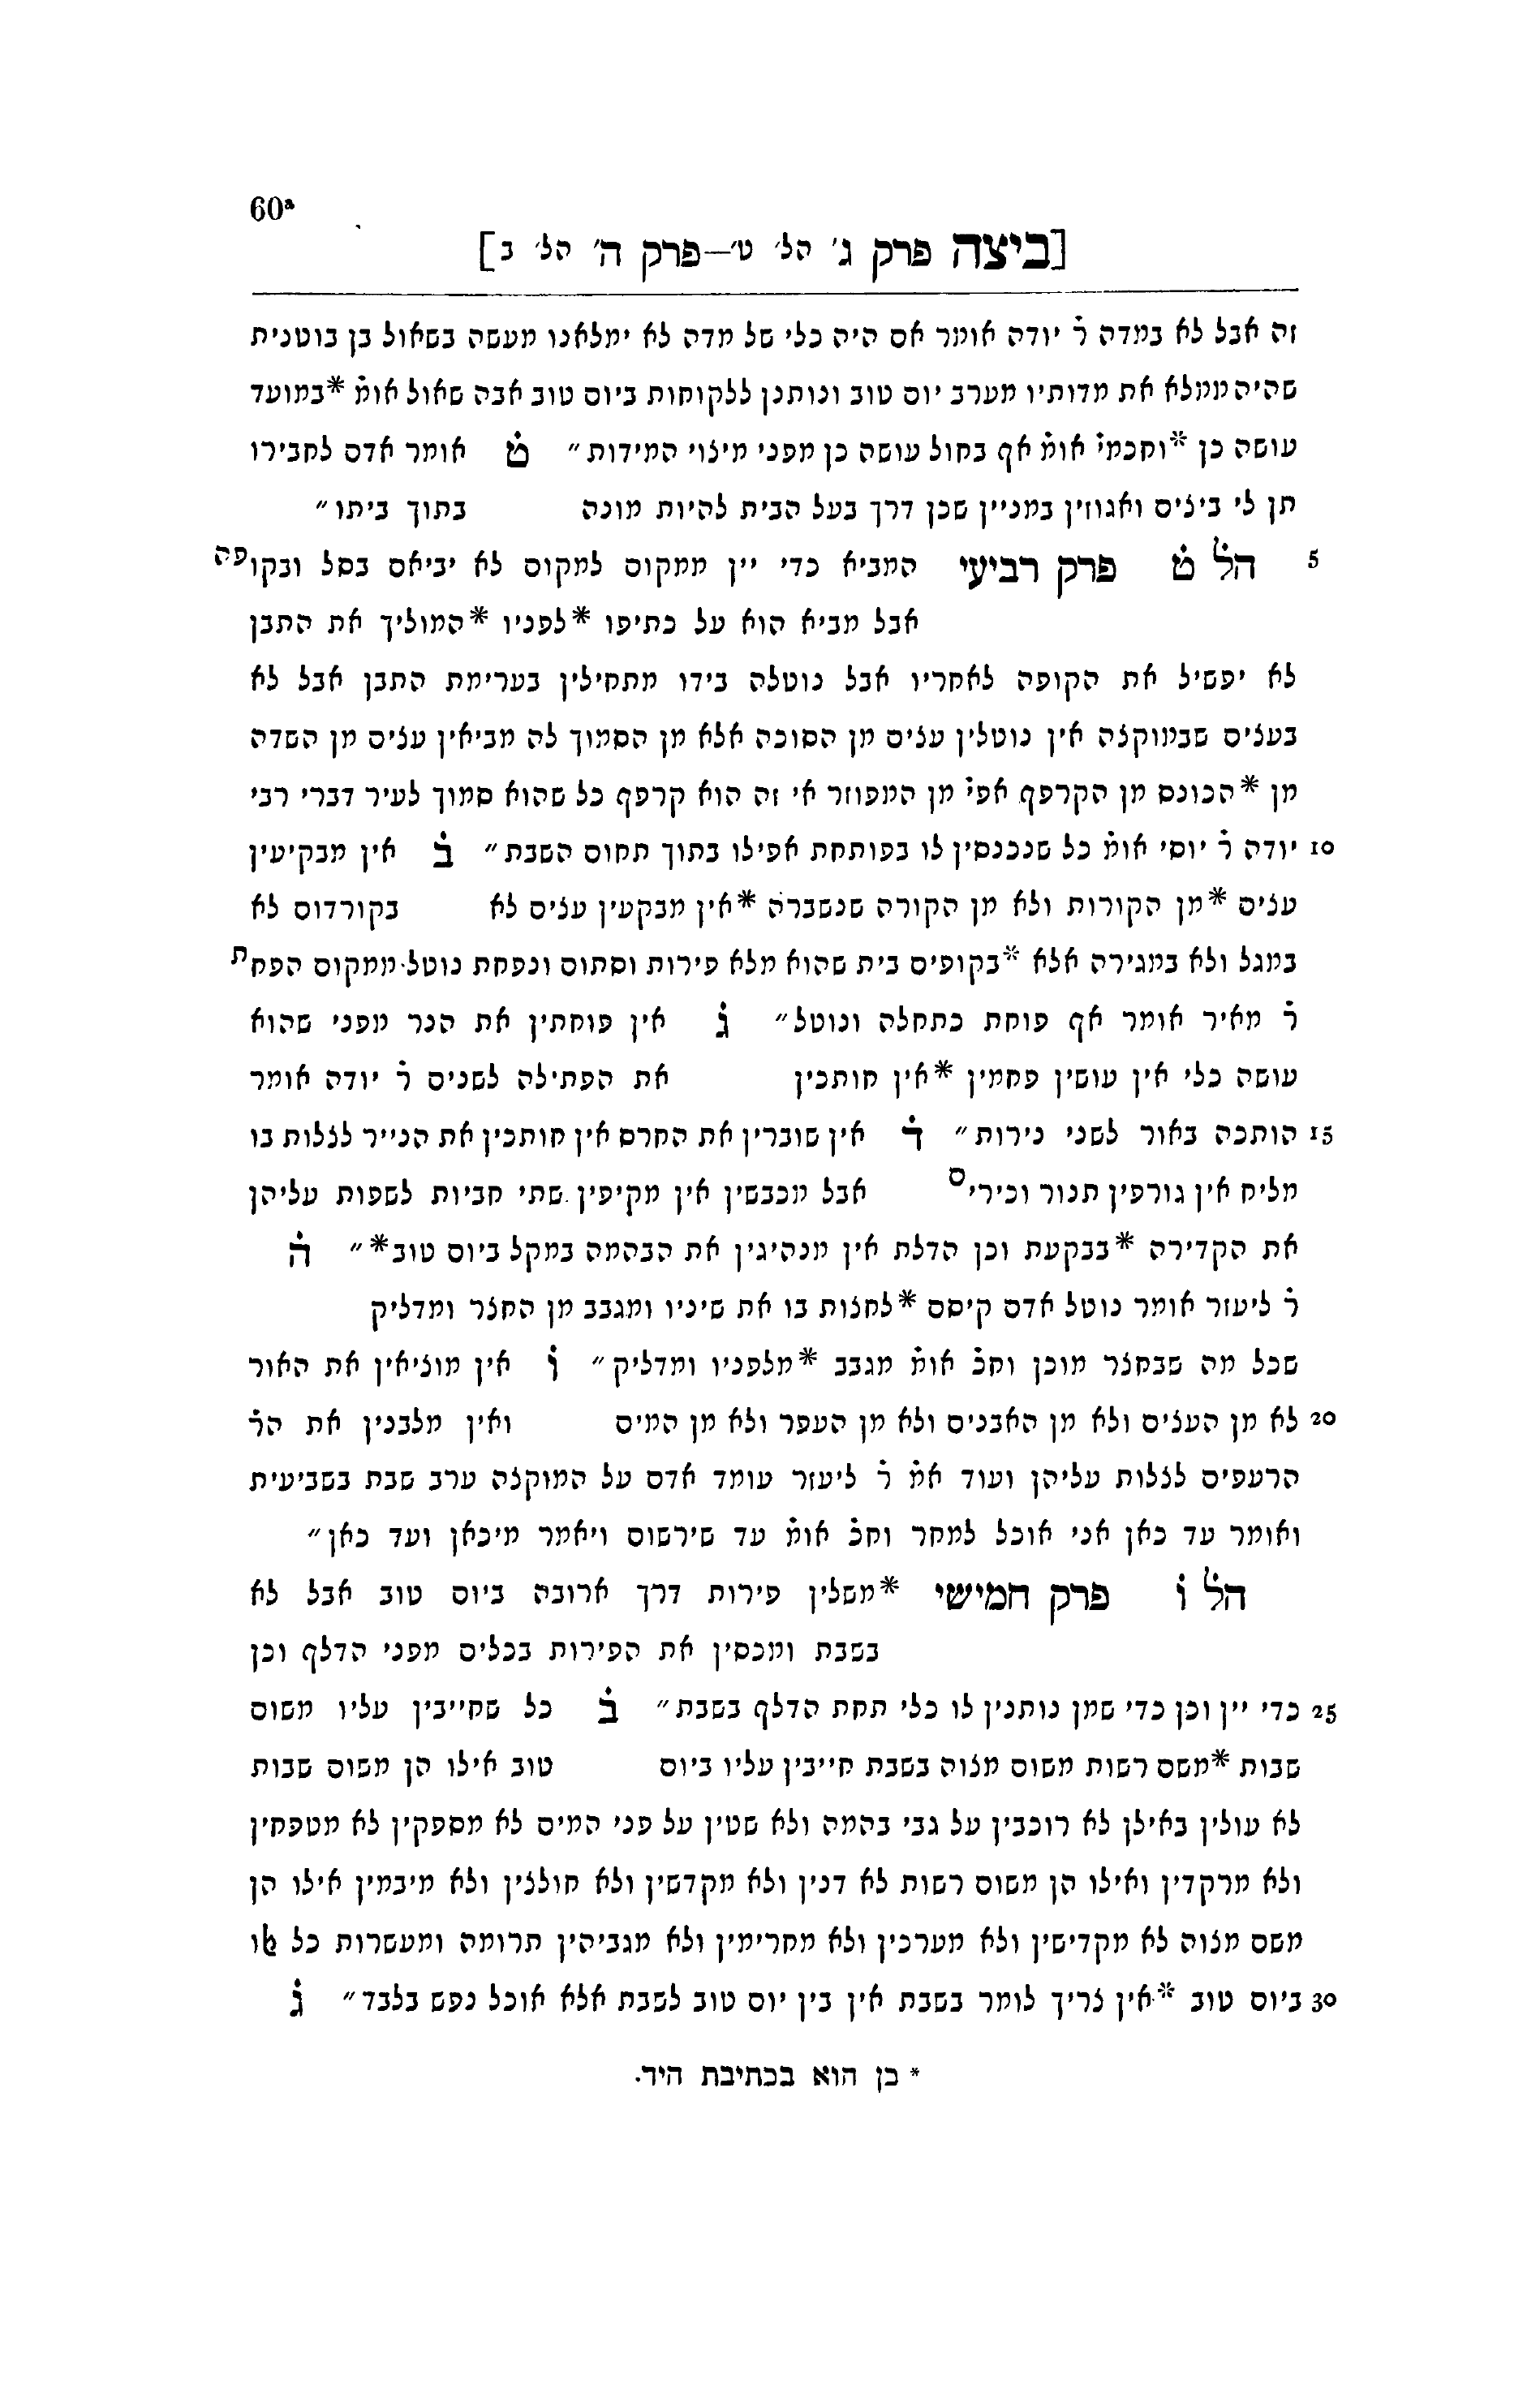 60ª
[ביצה פרק ג׳ הל׳ ט׳—פרק ה׳ הל׳ ב]
זה אבל לא במדה ר̇ יודה אומר אם היה כלי של מדה לא ימלאנו מעשה בשאול בן בוטנית
שהיה ממלא את מדותיו מערב יום טוב ונותנן ללקוחות ביום טוב אבה שאול אומ̇ *במועד
עושה כן *וחכמי̇ אומ̇ אף בחול עושה כן מפני מיצוי המידות״ ט̇ אומר אדם לחבירו
תן לי ביצים ואגוזין במניין שכן דרך בעל הבית להיות מונה בתוך ביתו״
5 הל̇ ט̇ פרק רביעי המביא כדי יין ממקום למקום לא יביאם בסל ובקופה
אבל מביא הוא על כתיפו *לפניו *המוליך את התבן
לא יפשיל את הקופה לאחריו אבל נוטלה בידו מתחילין בערימת התבן אבל לא
בעצים שבמוקצה אין נוטלין עצים מן הסוכה אלא מן הסמוך לה מביאין עצים מן השדה
מן *הכונס מן הקרפף אפי̇ מן המפוזר אי זה הוא קרפף כל שהוא סמוך לעיר דברי רבי
10 יודה ר̇ יוסי אומ̇ כל שנכנסין לו בפותחת אפילו בתוך תחום השבת״ ב̇ אין מבקיעין
עצים *מן הקורות ולא מן הקורה שנשברה *אין מבקעין עצים לא בקורדום לא
במגל ולא במגירה אלא *בקופים בית שהוא מלא פירות וסתום ונפחת נוטל ממקום הפחת
ר̇ מאיר אומר אף פוחת כתחלה ונוטל״ ג̇ אין פוחתין את הנר מפני שהוא
עושה כלי אין עושין פחמין *אין חותכין את הפתילה לשנים ר̇ יודה אומר
15 הותכה באור לשני נירות״ ד̇ אין שוברין את החרס אין חותכין את הנייר לצלות בו
מליח אין גורפין תנור וכירים אבל מכבשין אין מקיפין שתי חביות לשפות עליהן
את הקדירה *בבקעת וכן הדלת אין מנהיגין את הבהמה במקל ביום טוב*״ ה̇
ר̇ ליעזר אומר נוטל אדם קיסם *לחצות בו את שיניו ומגבב מן החצר ומדליק
שכל מה שבחצר מוכן וחכ̇ אומ̇ מגבב *מלפניו ומדליק״ ו̇ אין מוציאין את האור
20 לא מן העצים ולא מן האבנים ולא מן העפר ולא מן המים ואין מלבנין את הר̇
הרעפים לצלות עליהן ועוד אמ̇ ר̇ ליעזר עומד אדם על המוקצה ערב שבת בשביעית
ואומר עד כאן אני אוכל למחר וחכ̇ אומ̇ עד שירשום ויאמר מיכאן ועד כאן״
הל̇ ו̇ פרק חמישי *משלין פירות דרך ארובה ביום טוב אבל לא
בשבת ומכסין את הפירות בכלים מפני הדלף וכן
25 כדי יין וכן כדי שמן נותנין לו כלי תחת הדלף בשבת״ ב̇ כל שחייבין עליו משום
שבות *משם רשות משום מצוה בשבת חייבין עליו ביום טוב אילו הן משום שבות
לא עולין באילן לא רוכבין על גבי בהמה ולא שטין על פני המים לא מספקין לא מטפחין
ולא מרקדין ואילו הן משום רשות לא דנין ולא מקדשין ולא חולצין ולא מיבמין אילו הן
משם מצוה לא מקדישין ולא מערכין ולא מחרימין ולא מגביהין תרומה ומעשרות כל אלו
30 ביום טוב *אין צריך לומר בשבת אין בין יום טוב לשבת אלא אוכל נפש בלבד״ ג̇
* כן הוא בכתיבת היד.